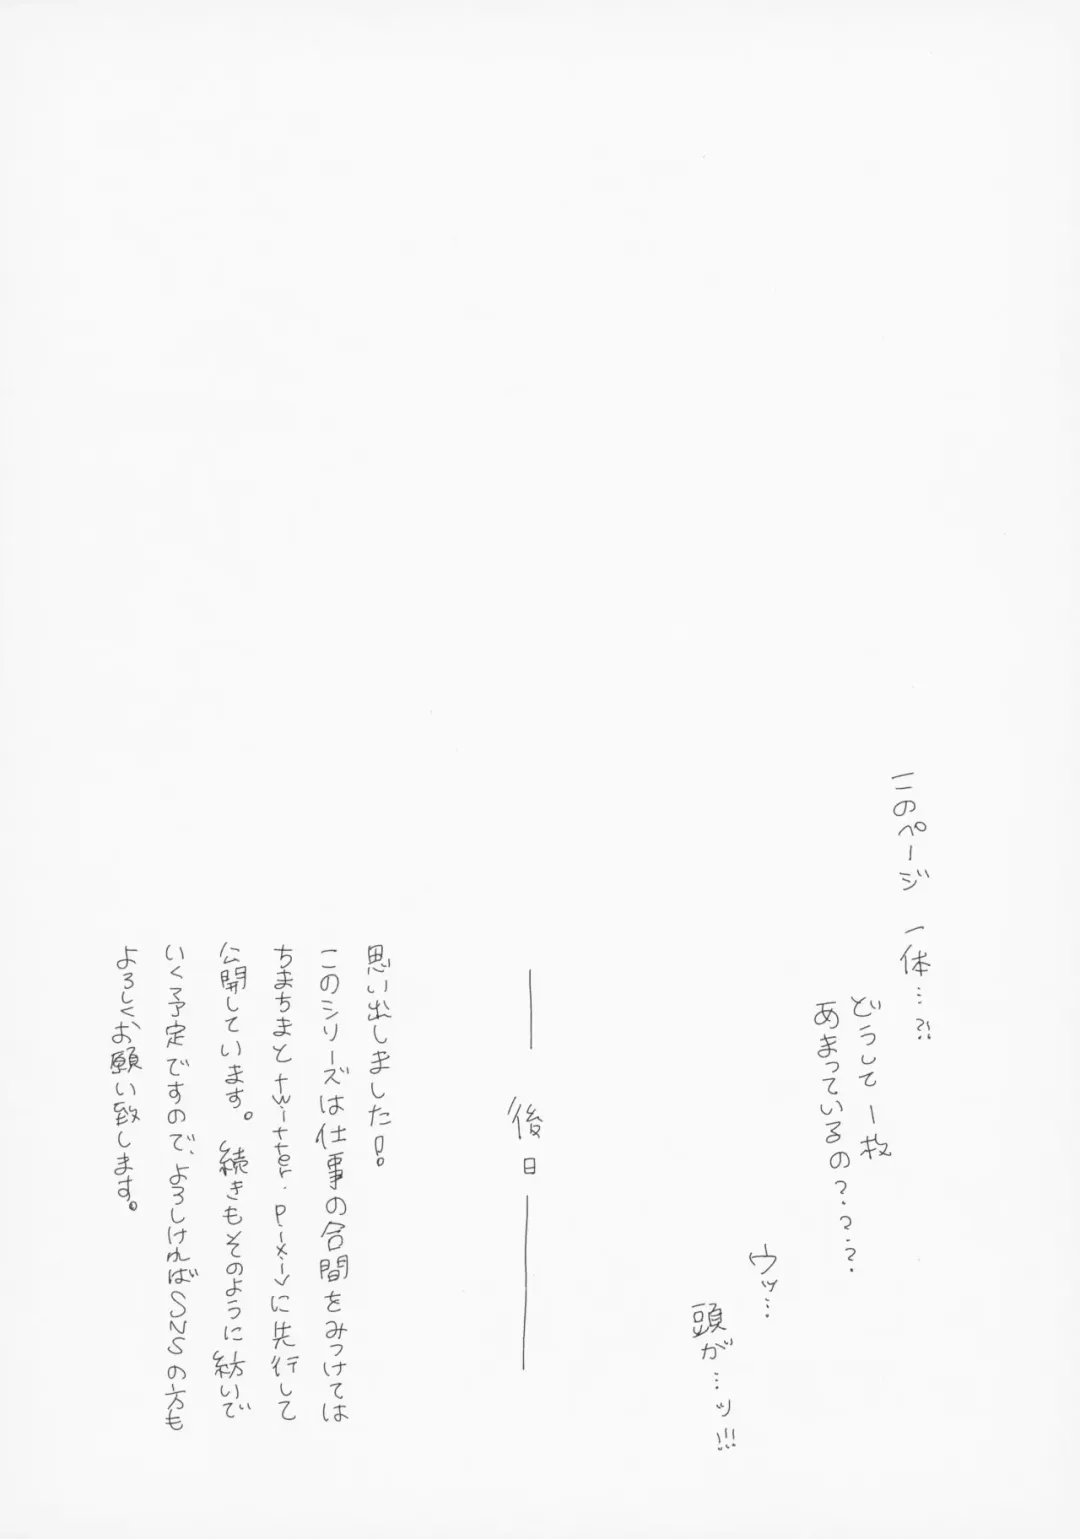 このページ 一体…?!
どうして 一枚
あまっているの？？？
ウッ…
頭が…ッ!!!
── 後日 ──
思い出しました！。
このシリーズは仕事の合間をみつけては
ちまちまとtwitter・pixivに先行して
公開しています。続きもそのように紡いで
いく予定ですので、よろしければSNSの方も
よろしくお願い致します。